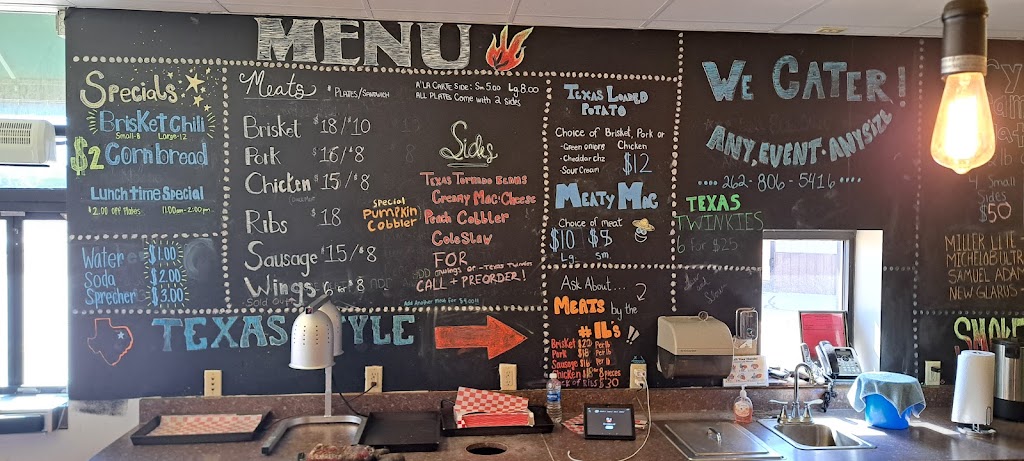 MENU
Specials
BrisKet Chili
Small-8 Large-12
$2 Corn bread
Lunch Time Special
$2.00 Off Plates 11:00am-2:00pm
Water $1.00
Soda $2.00
Sprecher $3.00
Meats $ Plates/Sandwich
A'LA CARTE Side: Sm 5.00 Lg. 8.00
ALL PLATES Come with 2 sides
Brisket $18/$10
Pork $16/$8
Chicken $15/$8
Ribs $18
Sausage $15/$8
Wings
Sold Out
Special
Pumpkin
Cobbler
Sides
Texas Tornado Beans
Creamy Mac & Cheese
Peach Cobbler
Cole Slaw
FOR
CALL + PREORDER!
Add Another Meat For $4.00!!
TEXAS STYLE
Texas Loaded
Potato
Choice of Brisket, Pork or
Chicken
-Green onions
-Cheddar chz
Sour Cream
$12
Meaty Mac
Choice of meat
$10 $8
Lg. Sm.
Ask About...
Meats by the
# lbs!
Brisket $22 Per lb
Pork $18 Per lb
Sausage $16 Per lb
Chicken 8 pieces
Rack of Ribs $30
We Cater!
Any, Event · Any size
262-806-5416
TEXAS
TWINKIES
6 For $25
4 Small
Sides
$50
MILLER LITE
MICHELOB ULTR
SAMUEL ADAM
NEW GLARUS